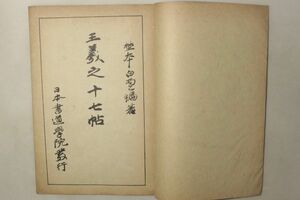 松本白南編著
王羲之十七帖
日本書道學院發行